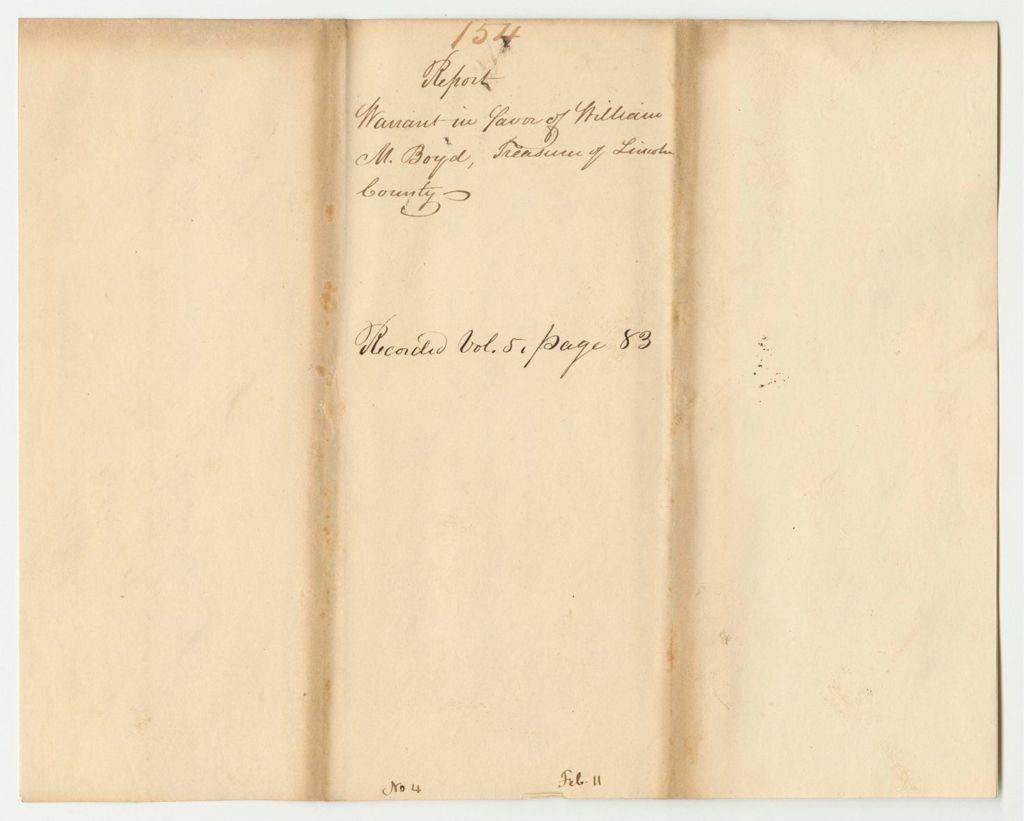 154
Report
Warrant in favor of William
M. Boyd, Treasurer of Lincoln
County
Recorded Vol. 5, page 83
No 4 Feb. 11